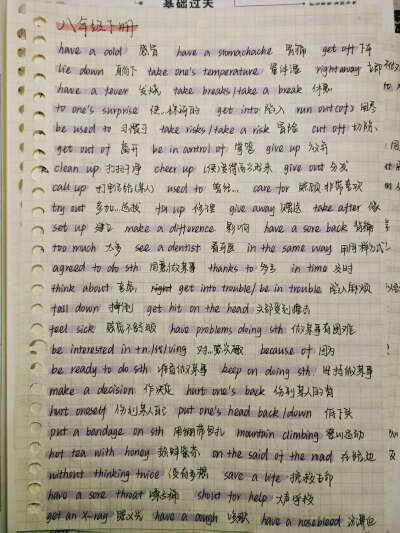 基础过关
八年级下册
have a cold 感冒 have a stomachache 胃痛 get off 下车
lie down 躺下 take one's temperature 量体温 right away 立即
have a fever 发烧 take breaks/take a break 休息
to one's surprise 使...惊讶的 get into 陷入 run out (of) 用尽
be used to 习惯于 take risks/take a risk 冒险 cut off 切除
get out of 离开 be in control of 掌管 give up 放弃
clean up 打扫干净 cheer up (使)变得高兴起来 give out 分发
call up 打电话给(某人) used to 曾经... care for 照顾 非常喜欢
try out 参加...选拔 fix up 修理 give away 赠送 take after 像
set up 建立 make a difference 影响 have a sore back 背痛
too much 太多 see a dentist 看牙医 in the same way 用同样方式
agreed to do sth 同意做某事 thanks to 多亏 in time 及时
think about 考虑 get into trouble/be in trouble 陷入麻烦
fall down 摔倒 get hit on the head 头部受到撞击
feel sick 感觉不舒服 have problems doing sth 做某事有困难
be interested in +n./ving 对...感兴趣 because of 因为
be ready to do sth 准备做某事 keep on doing sth 坚持做某事
make a decision 作决定 hurt one's back 伤到某人的背
hurt oneself 伤到某人自己 put one's head back/down 低下头
put a bandage on sth 用绷带包扎 mountain climbing 登山运动
hot tea with honey 热蜂蜜茶 on the said of the road 在路边
without thinking twice 没有多想 save a life 挽救生命
have a sore throat 喉咙痛 shout for help 大声呼救
get an X-ray 做X光 have a cough 咳嗽 have a nosebleed 流鼻血